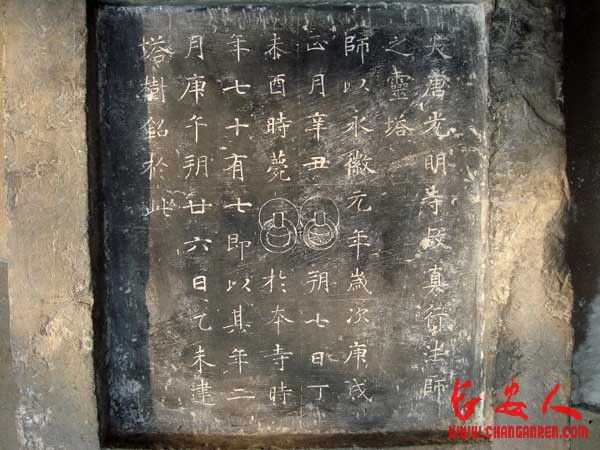 大唐光明寺真行法師
之靈塔
師以永徽元年歲次庚戌
正月辛丑朔七日丁
未酉時薨於本寺時
年七十有七即以其年二
月庚午朔廿六日乙未建
塔樹銘於此
长安人
WWW.CHANGANREN.COM